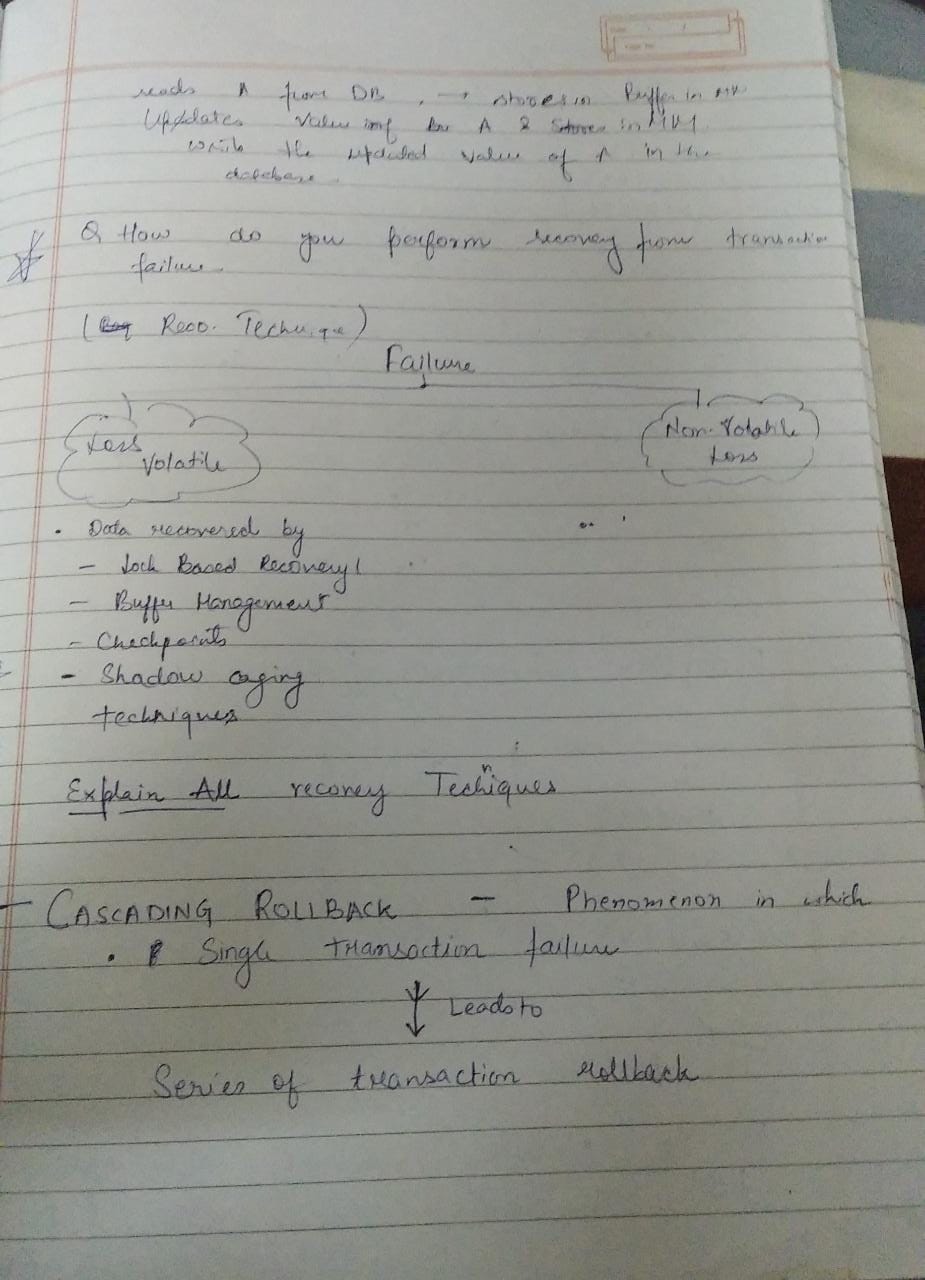 reads A from DB. → stores in Buffer in MM
Updates value of A & Stores in MM
write the updated value of A in the
database.
Q How do you perform recovey from transaction
failure.
( Reco. Technique)
Failure
Loss
Volatile
Non-Volatile
Loss
• Data recovered by
- Lock Based Recovery
- Buffer Management
- Checkpoints
- Shadow caging
techniques
Explain All recovey Techniques
- CASCADING ROLLBACK - Phenomenon in which
• Single transaction failure
Leads to
Series of transaction rollback